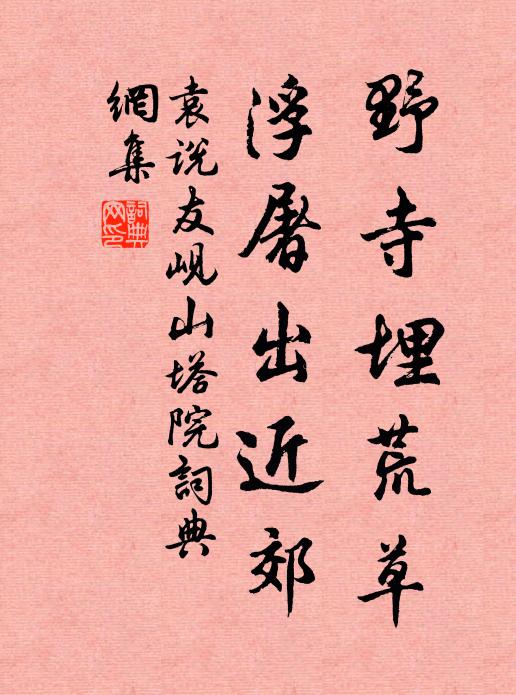 野寺埋荒草
浮屠出近郊
袁说友岘山塔院詞典
網集
詞典網印